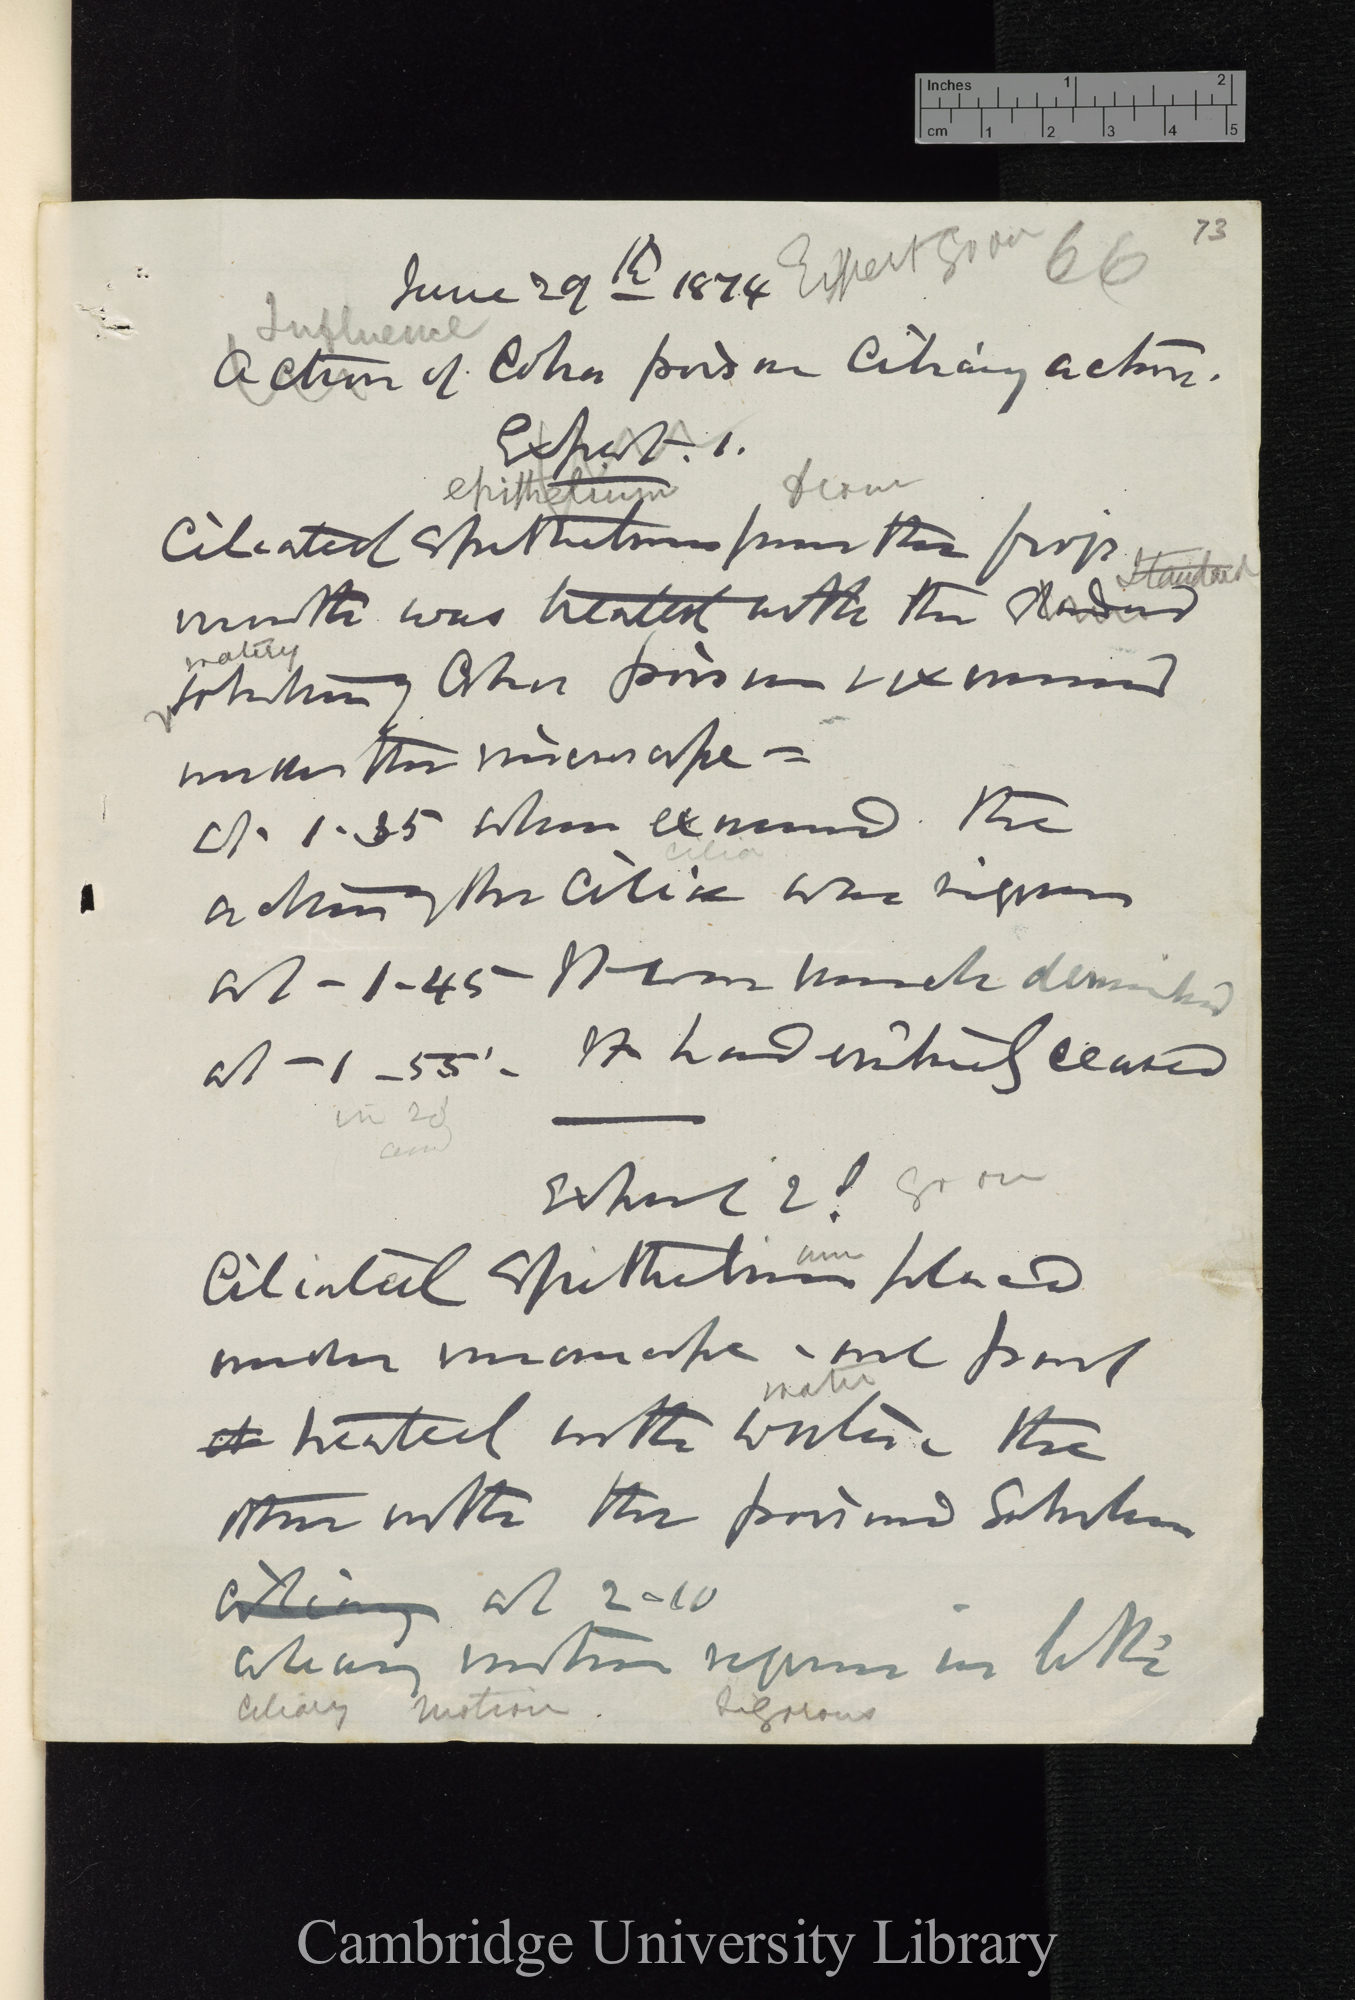 73
June 29th 1874 Expert Go on 66
Influence
Action of Cobra poison Ciliary action.
Expert. 1.
epithelium
Ciliated Epithelium from the frogs
Standard
mouth was treated with the standard
watery
solution of Cobra poison & examined
under the microscope =
at 1-35 when examined the
cilia
action of the Cilia was vigorous
at - 1-45 - It was much diminished
at - 1-55'- It had entirely ceased
in 20
Experiment 2d Go on
um
Ciliated Epithelium placed
under microscope - one part
water
it treated with water the
other with the poisoned Solution
Ciliary at 2-10
ciliary motion vigorous in both
Ciliary Motion. Vigorous
Inches 1 2
cm 1 2 3 4 5
Cambridge University Library